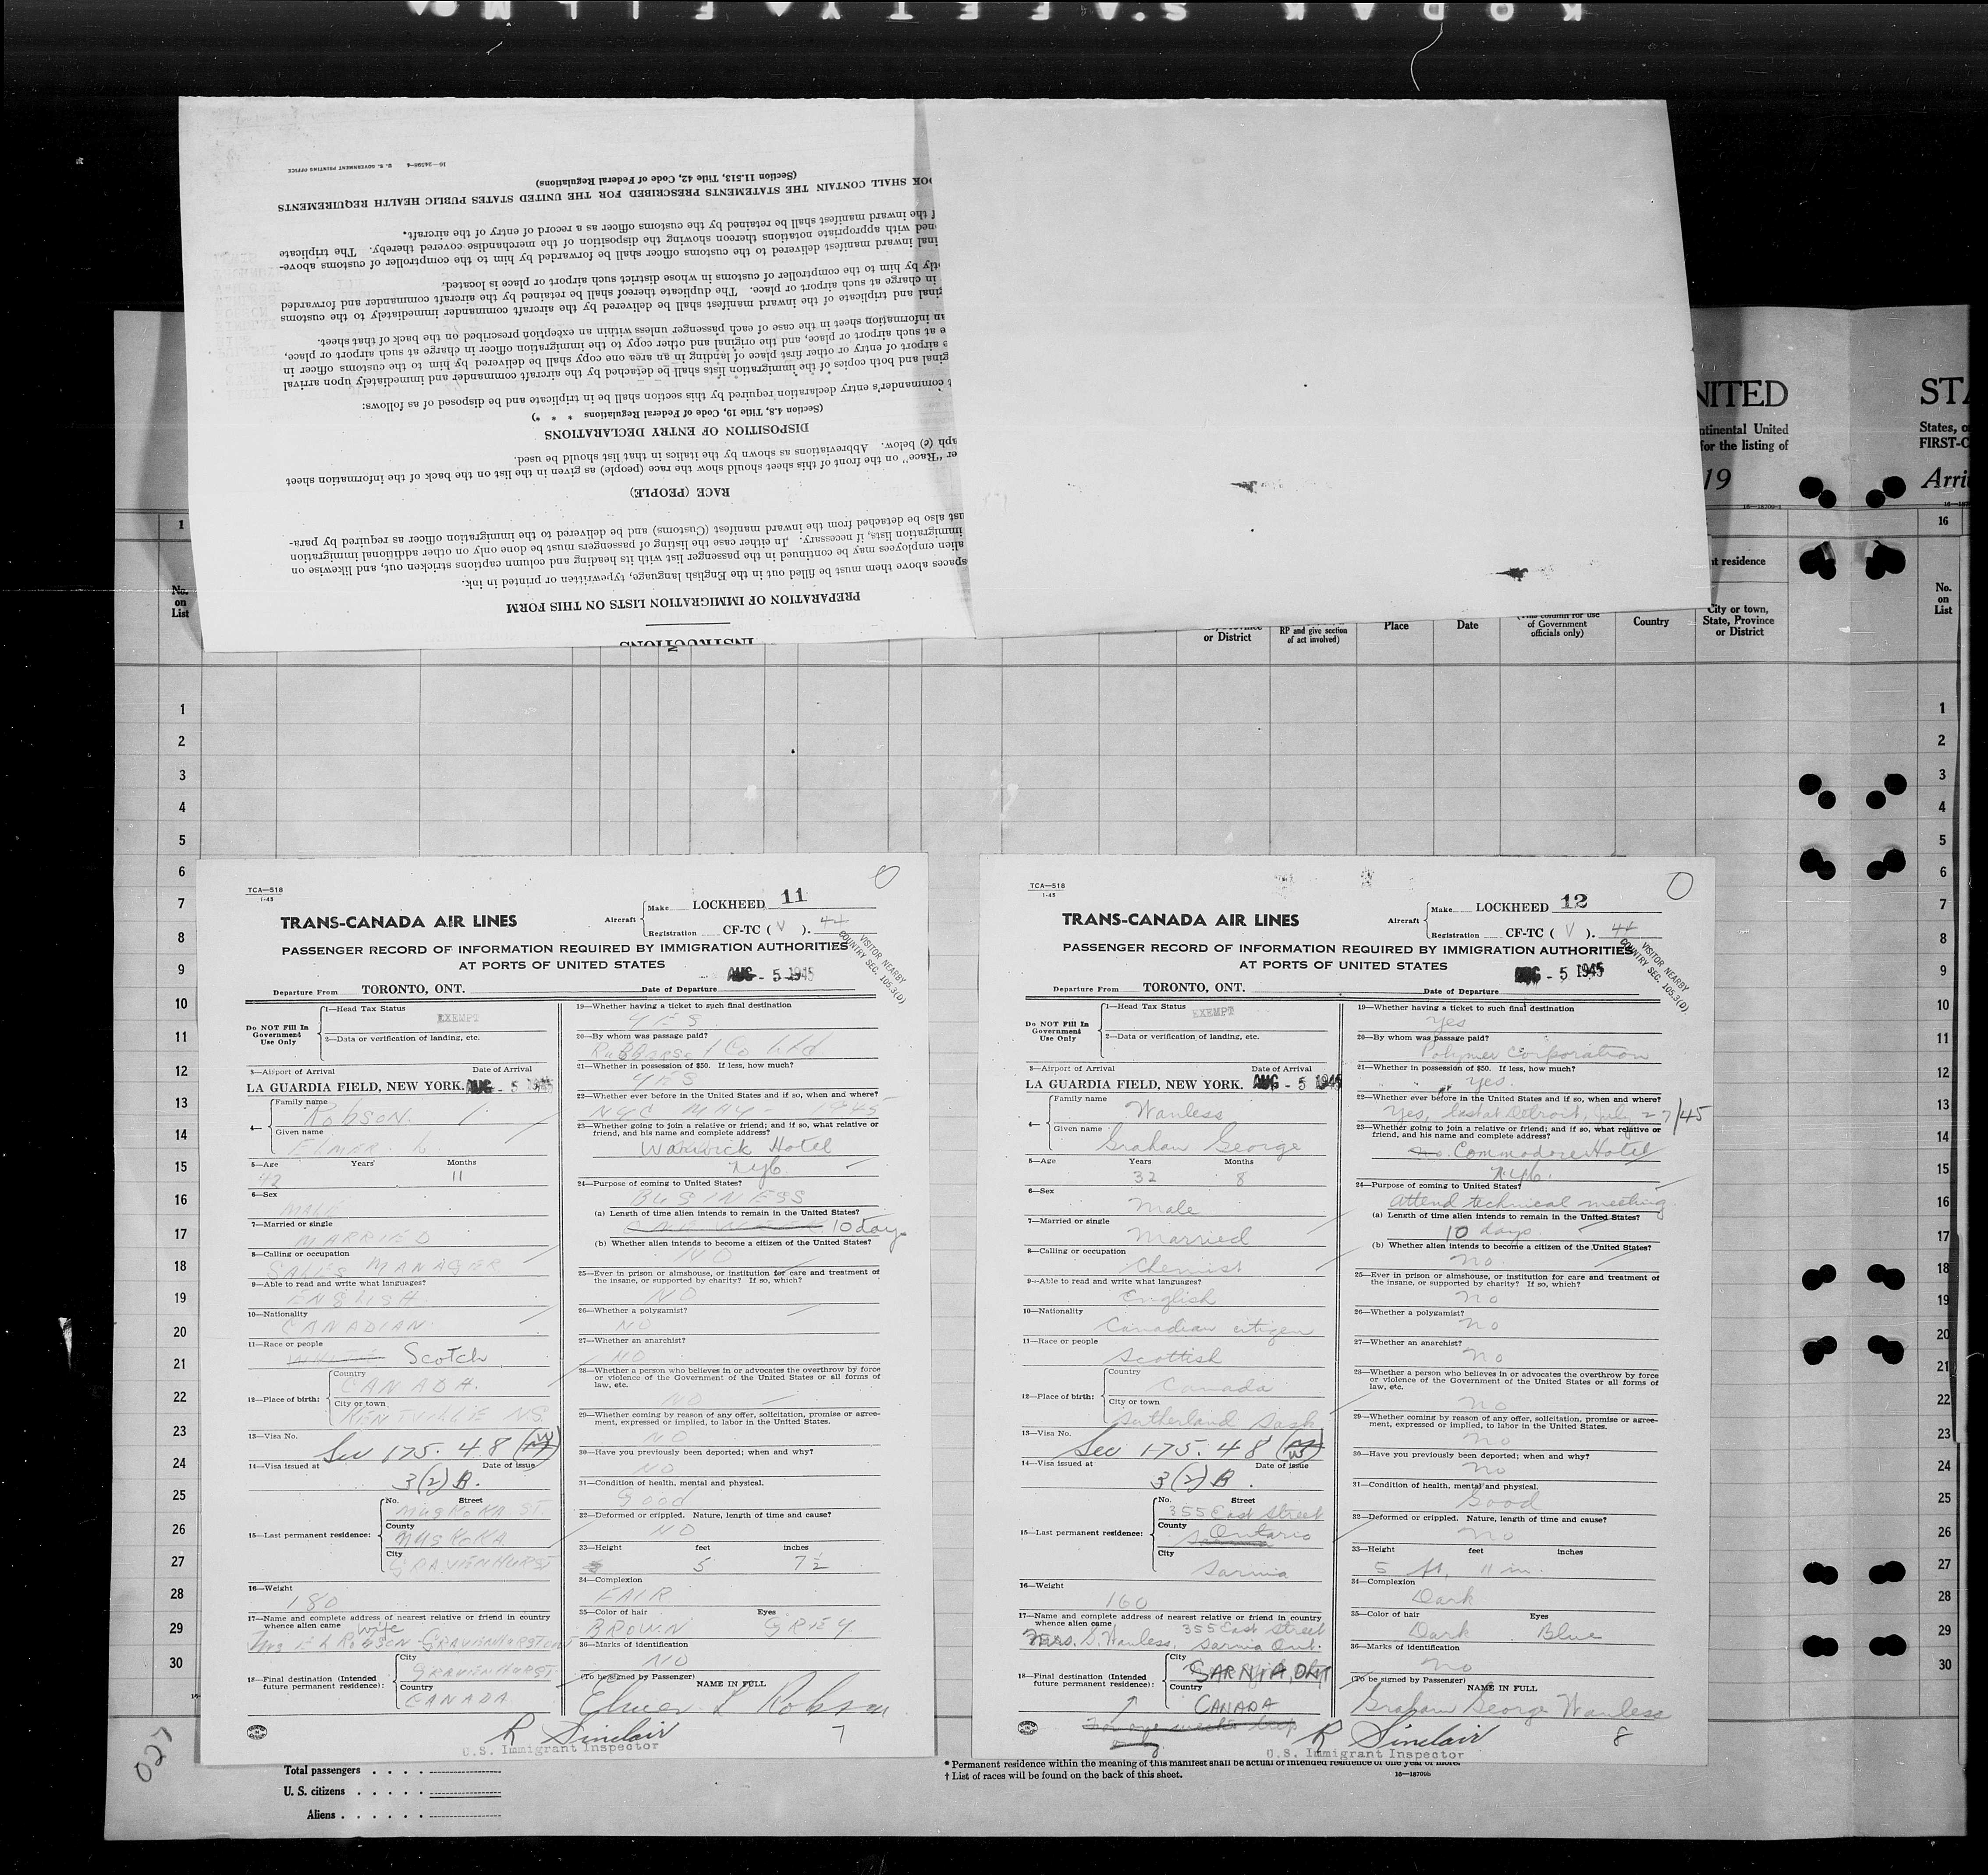 KODAK SAFETY FILM
16—24598-4 U. S. GOVERNMENT PRINTING OFFICE
INSTRUCTIONS
PREPARATION OF IMMIGRATION LISTS ON THIS FORM
spaces above them must be filled out in the English language, typewritten or printed in ink.
alien employees may be continued in the passenger list with its heading and column captions stricken out, and likewise on
immigration lists, if necessary. In either case the listing of passengers must be done only on other additional immigration
ust also be detached from the inward manifest (Customs) and be delivered to the immigration officer as required by para-
RACE (PEOPLE)
er "Race" on the front of this sheet should show the race (people) as given in the list on the back of the information sheet
aph (c) below. Abbreviations as shown by the italics in that list should be used.
DISPOSITION OF ENTRY DECLARATIONS
(Section 4.8, Title 19, Code of Federal Regulations * * *)
t commander's entry declaration required by this section shall be in triplicate and be disposed of as follows:
ginal and both copies of the immigration lists shall be detached by the aircraft commander and immediately upon arrival
e airport of entry or other first place of landing in an area one copy shall be delivered by him to the customs officer in
e at such airport or place, and the original and other copy to the immigration officer in charge at such airport or place,
an information sheet in the case of each passenger unless within an exception prescribed on the back of that sheet.
ginal and triplicate of the inward manifest shall be delivered by the aircraft commander immediately to the customs
in charge at such airport or place. The duplicate thereof shall be retained by the aircraft commander and forwarded
tly by him to the comptroller of customs in whose district such airport or place is located.
inal inward manifest delivered to the customs officer shall be forwarded by him to the comptroller of customs above-
ned with appropriate notations thereon showing the disposition of the merchandise covered thereby. The triplicate
f the inward manifest shall be retained by the customs officer as a record of entry of the aircraft.
OOK SHALL CONTAIN THE STATEMENTS PRESCRIBED FOR THE UNITED STATES PUBLIC HEALTH REQUIREMENTS
(Section 11.513, Title 42, Code of Federal Regulations)
NITED
ntinental United
for the listing of
19
16—18709-1
STA
States, o
FIRST-C
Arri
1
No.
on
List
or District
RP and give section
of act involved)
Place
Date
(This column for use
of Government
officials only)
Country
nt residence
City or town,
State, Province
or District
16
No.
on
List
1
2
3
4
5
6
7
8
9
10
11
12
13
14
15
16
17
18
19
20
21
22
23
24
25
26
27
28
29
30
TCA—518
1-45
TRANS-CANADA AIR LINES
Aircraft
Make LOCKHEED 11
Registration CF-TC ( V ). 44
PASSENGER RECORD OF INFORMATION REQUIRED BY IMMIGRATION AUTHORITIES
AT PORTS OF UNITED STATES
VISITOR NEARBY
COUNTRY SEC. 105.3(D)
AUG - 5 1945
Departure From TORONTO, ONT. Date of Departure
Do NOT Fill In
Government
Use Only
1—Head Tax Status
EXEMPT
2—Data or verification of landing, etc.
3—Airport of Arrival Date of Arrival
LA GUARDIA FIELD, NEW YORK. AUG - 5 1945
4— Family name
ROBSON.
Given name
ELMER. L.
5—Age Years Months
42 11
6—Sex
MALE
7—Married or single
MARRIED
8—Calling or occupation
SALES MANAGER
9—Able to read and write what languages?
ENGLISH
10—Nationality
CANADIAN.
11—Race or people
WHITE Scotch
12—Place of birth:
Country
CANADA.
City or town
KENTVILLE NS.
13—Visa No.
Sec 175.48
14—Visa issued at Date of issue
3(2)B.
15—Last permanent residence:
No. Street
MUSKOKA ST.
County
MUSKOKA
City
GRAVENHURST
16—Weight
180
17—Name and complete address of nearest relative or friend in country
whence alien came
wife
MRS E L ROBSON GRAVENHURST ONT
18—Final destination (Intended
future permanent residence):
City
GRAVENHURST.
Country
CANADA
19—Whether having a ticket to such final destination
YES.
20—By whom was passage paid?
Co Ltd
21—Whether in possession of $50. If less, how much?
YES
22—Whether ever before in the United States and if so, when and where?
NYC MAY - 1945
23—Whether going to join a relative or friend; and if so, what relative or
friend, and his name and complete address?
Warwick Hotel
NYC.
24—Purpose of coming to United States?
BUSINESS
(a) Length of time alien intends to remain in the United States?
ONE WEEK 10 days
(b) Whether alien intends to become a citizen of the United States?
NO
25—Ever in prison or almshouse, or institution for care and treatment of
the insane, or supported by charity? If so, which?
NO
26—Whether a polygamist?
NO
27—Whether an anarchist?
NO
28—Whether a person who believes in or advocates the overthrow by force
or violence of the Government of the United States or all forms of
law, etc.
NO
29—Whether coming by reason of any offer, solicitation, promise or agree-
ment, expressed or implied, to labor in the United States.
NO
30—Have you previously been deported; when and why?
NO
31—Condition of health, mental and physical.
Good
32—Deformed or crippled. Nature, length of time and cause?
NO
33—Height feet inches
5 7½
34—Complexion
FAIR
35—Color of hair Eyes
BROWN GREY
36—Marks of identification
NO
(To be signed by Passenger) NAME IN FULL
Elmer L Robson
R Sinclair
U.S. Immigrant Inspector
7
TCA—518
1-45
TRANS-CANADA AIR LINES
Aircraft
Make LOCKHEED 12
Registration CF-TC ( V ). 44
PASSENGER RECORD OF INFORMATION REQUIRED BY IMMIGRATION AUTHORITIES
AT PORTS OF UNITED STATES
VISITOR NEARBY
COUNTRY SEC. 105.3(D)
AUG - 5 1945
Departure From TORONTO, ONT. Date of Departure
Do NOT Fill In
Government
Use Only
1—Head Tax Status
EXEMPT
2—Data or verification of landing, etc.
3—Airport of Arrival Date of Arrival
LA GUARDIA FIELD, NEW YORK. AUG - 5 1945
4— Family name
Wanless
Given name
Graham George
5—Age Years Months
32 8
6—Sex
Male
7—Married or single
Married
8—Calling or occupation
Chemist
9—Able to read and write what languages?
English
10—Nationality
Canadian citizen
11—Race or people
Scottish
12—Place of birth:
Country
Canada
City or town
Sutherland Sask
13—Visa No.
Sec 175.48
14—Visa issued at Date of issue
3(2)B.
15—Last permanent residence:
No. Street
355 East Street
County
Ontario
City
Sarnia
16—Weight
160
17—Name and complete address of nearest relative or friend in country
whence alien came
355 East Street
Mrs. G. Wanless, Sarnia Ont.
18—Final destination (Intended
future permanent residence):
City
SARNIA, ONT
Country
CANADA
19—Whether having a ticket to such final destination
Yes
20—By whom was passage paid?
Polymer Corporation
21—Whether in possession of $50. If less, how much?
Yes.
22—Whether ever before in the United States and if so, when and where?
Yes, last at Detroit, July 27/45
23—Whether going to join a relative or friend; and if so, what relative or
friend, and his name and complete address?
no. Commodore Hotel
NYC.
24—Purpose of coming to United States?
Attend technical meeting
(a) Length of time alien intends to remain in the United States?
10 days.
(b) Whether alien intends to become a citizen of the United States?
No.
25—Ever in prison or almshouse, or institution for care and treatment of
the insane, or supported by charity? If so, which?
No
26—Whether a polygamist?
No
27—Whether an anarchist?
No
28—Whether a person who believes in or advocates the overthrow by force
or violence of the Government of the United States or all forms of
law, etc.
No
29—Whether coming by reason of any offer, solicitation, promise or agree-
ment, expressed or implied, to labor in the United States.
No
30—Have you previously been deported; when and why?
No
31—Condition of health, mental and physical.
Good
32—Deformed or crippled. Nature, length of time and cause?
No
33—Height feet inches
5 ft. 11 in.
34—Complexion
Dark
35—Color of hair Eyes
Dark Blue
36—Marks of identification
No
(To be signed by Passenger) NAME IN FULL
Graham George Wanless
R Sinclair
U.S. Immigrant Inspector
8
027
Total passengers . . . .
U. S. citizens . . . . .
Aliens . . . . . .
* Permanent residence within the meaning of this manifest shall be actual or intended residence of one year or more.
† List of races will be found on the back of this sheet.
16—18709b